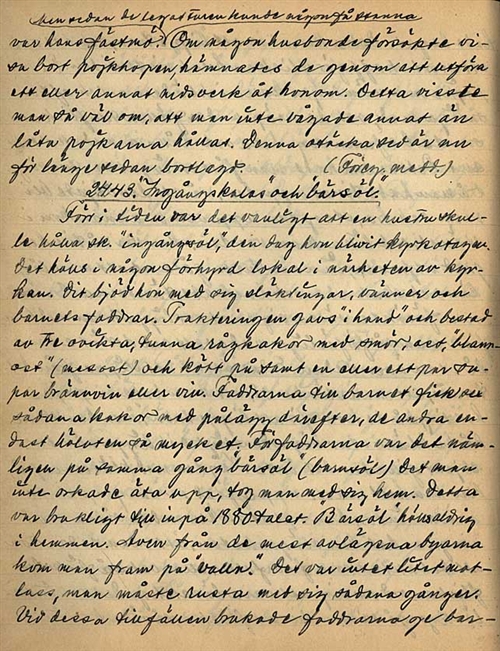 men sedan de legat turen kunde någon få stanna
var hans fästmö. Om någon husbonde försökte vi-
sa bort pojkhopen, hämnades de genom att utföra
ett eller annat nidsverk åt honom. Detta visste
man så väl om, att man inte vågade annat än
låta pojkarna hållas. Denna otäcka sed är nu
för länge sedan bortlagd. (Föreg. medd.)
2443. "Ingångskalas" och "bärsöl."
Förr i tiden var det vanligt att en hustru skul-
le hålla sk. "ingångsöl," den dag hon blivit kyrkotagen.
Det hölls i någon förhyrd lokal i närheten av kyr-
kan. Dit bjöd hon med sig släktingar, vänner och
barnets faddrar. Trakteringen gavs "i hand" och bestod
av tre ovikta, tunna rågkakor med smör, ost, "blann-
ost" (mesost) och kött på samt en eller ett par su-
par brännvin eller vin. Faddrarna till barnet fick sex
sådana kakor med pålägg därefter, de andra en-
dast hälvten så mycket. För faddrarna var det näm-
ligen på samma gång "bärsöl" (barnsöl) Det man
inte orkade äta upp, tog man med sig hem. Detta
var brukligt till inpå 1880talet. "Bärsöl" hölls aldrig
i hemmen. Även från de mest avlägsna byarna
kom man fram på "valln." Det var intet litet mat-
lass, man måste rusta med sig sådana gånger.
Vid dessa tillfällen brukade faddrarna ge bar-